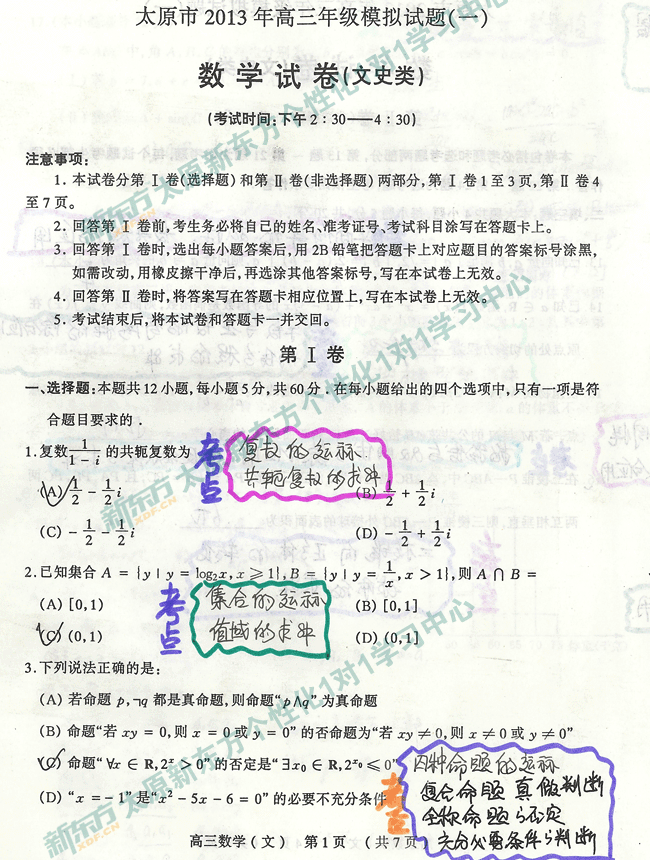 太原市 2013 年高三年级模拟试题(一)
数学试卷(文史类)
(考试时间:下午 2:30——4:30)
注意事项:
1. 本试卷分第 Ⅰ 卷(选择题) 和第 Ⅱ 卷(非选择题) 两部分,第 Ⅰ 卷 1 至 3 页,第 Ⅱ 卷 4
至 7 页。
2. 回答第 Ⅰ 卷前,考生务必将自己的姓名、准考证号、考试科目涂写在答题卡上。
3. 回答第 Ⅰ 卷时,选出每小题答案后,用 2B 铅笔把答题卡上对应题目的答案标号涂黑,
如需改动,用橡皮擦干净后,再选涂其他答案标号,写在本试卷上无效。
4. 回答第 Ⅱ 卷时,将答案写在答题卡相应位置上,写在本试卷上无效。
5. 考试结束后,将本试卷和答题卡一并交回。
第 Ⅰ 卷
一、选择题:本题共 12 小题,每小题 5 分,共 60 分. 在每小题给出的四个选项中,只有一项是符
合题目要求的.
1. 复数 1/(1-i) 的共轭复数为
考点
复数的运算
共轭复数的求解
(A) 1/2 - 1/2 i
(B) 1/2 + 1/2 i
(C) - 1/2 - 1/2 i
(D) - 1/2 + 1/2 i
2. 已知集合 A = {y | y = log₂x, x ⩾ 1}, B = {y | y = 1/x, x > 1}, 则 A ∩ B =
(A) [0,1)
考点
集合的运算
值域的求解
(B) [0,1]
(C) (0,1)
(D) (0,1]
3. 下列说法正确的是:
(A) 若命题 p,¬q 都是真命题,则命题“p∧q”为真命题
(B) 命题“若 xy = 0,则 x = 0 或 y = 0”的否命题为“若 xy ≠ 0,则 x ≠ 0 或 y ≠ 0”
(C) 命题“∀x ∈ R,2ˣ > 0”的否定是“∃x₀ ∈ R,2ˣ⁰ ⩽ 0”
(D) “x = -1”是“x² - 5x - 6 = 0”的必要不充分条件
考点
四种命题的运算
复合命题真假判断
全称命题与否定
充分必要条件与判断
高三数学(文) 第 1 页 (共 7 页)
新东方 XDF.CN
太原新东方个性化1对1学习中心